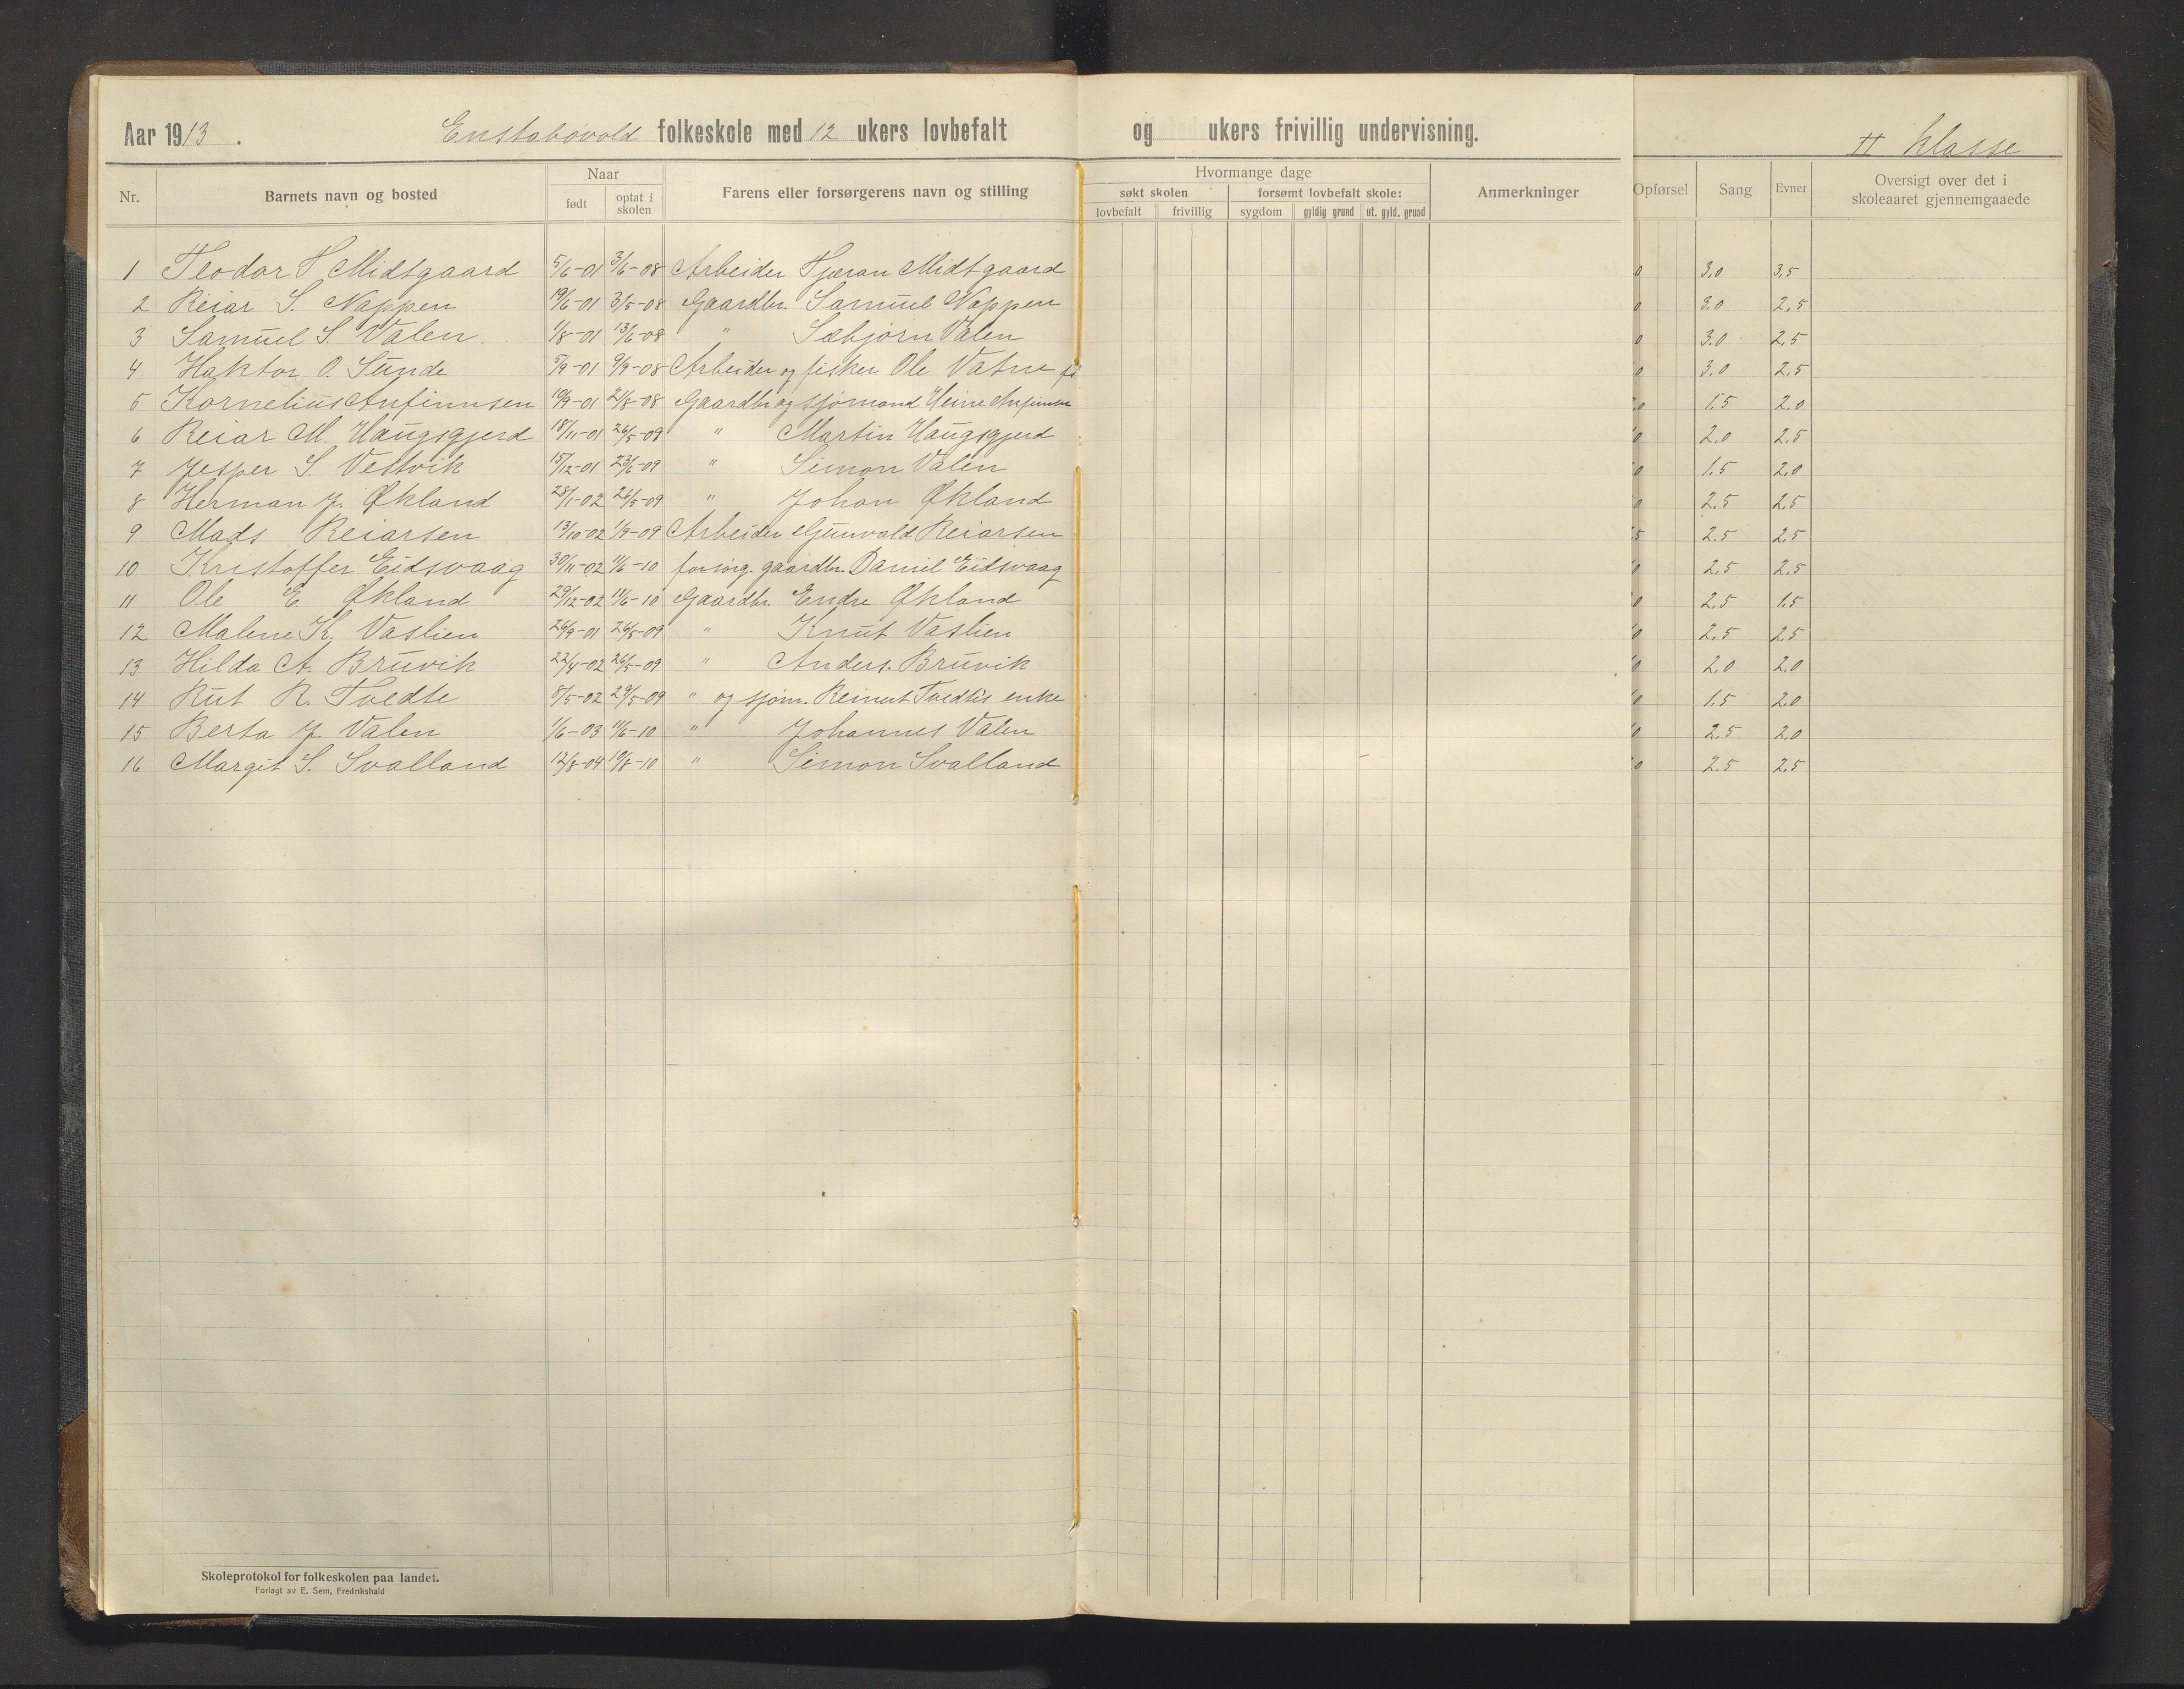 Aar 1913. Enstabøvold folkeskole med 12 ukers lovbefalt og ukers frivillig undervisning.
II klasse
Nr. Barnets navn og bosted Naar født optat i skolen Farens eller forsørgerens navn og stilling Hvormange dage søkt skolen lovbefalt frivillig forsømt lovbefalt skole: sygdom gyldig grund ut. gyld. grund Anmerkninger Opførsel Sang Evner Oversigt over det i skoleaaret gjennemgaaede
1 Teodor T. Midtgaard 5/6-01 3/6-08 Arbeider Tjeran Midtgaard 0 3.0 3,5
2 Reiar S. Nappen 19/6-01 3/5-08 Gaardbr. Samuel Nappen 0 3.0 2,5
3 Samuel S. Valen 1/8-01 13/6-08 " Sæbjørn Valen 0 3.0 2,5
4 Haktor O. Sunde 5/9-01 9/9-08 Arbeider og fisker Ole Vatne 0 3.0 2,5
5 Kornelius Anfinnsen 19/9-01 21/8-08 Gaardbr og sjømand Heine Anfinnsen 0 1,5 2.0
6 Reiar M. Haugsgjerd 18/11-01 26/5-09 " Martin Haugsgjerd 0 2.0 2.5
7 Jesper S. Vestvik 15/12-01 23/6-09 " Simon Valen 0 1,5 2.0
8 Herman J. Økland 28/1-02 26/5-09 " Johan Økland 0 2.5 2,5
9 Mads Reiarsen 13/10-02 1/9-09 Arbeider Gunvald Reiarsen 5 2.5 2.5
10 Kristoffer Eidsvaag 30/11-02 11/6-10 forsørg. gaardbr. Daniel Eidsvaag 0 2.5 2.5
11 Ole E. Økland 29/12-02 11/6-10 Gaardbr. Endre Økland 0 2.5 1.5
12 Malene K. Vaslien 26/9-01 26/5-09 " Knut Vaslien 0 2.5 2.5
13 Hilda A. Bruvik 22/4-02 26/5-09 " Anders. Bruvik 0 2.0 2.0
14 Rut R. Tvedte 8/5-02 29/5-09 " og sjøm. Reinert Tvedtes enke 0 1.5 2.0
15 Berta J. Valen 1/6-03 11/6-10 " Johannes Valen 0 2.5 2.0
16 Margit S. Svalland 12/8-04 19/8-10 " Simon Svalland 0 2.5 2.5
Skoleprotokol for folkeskolen paa landet.
Forlagt av E. Sem, Fredrikshald